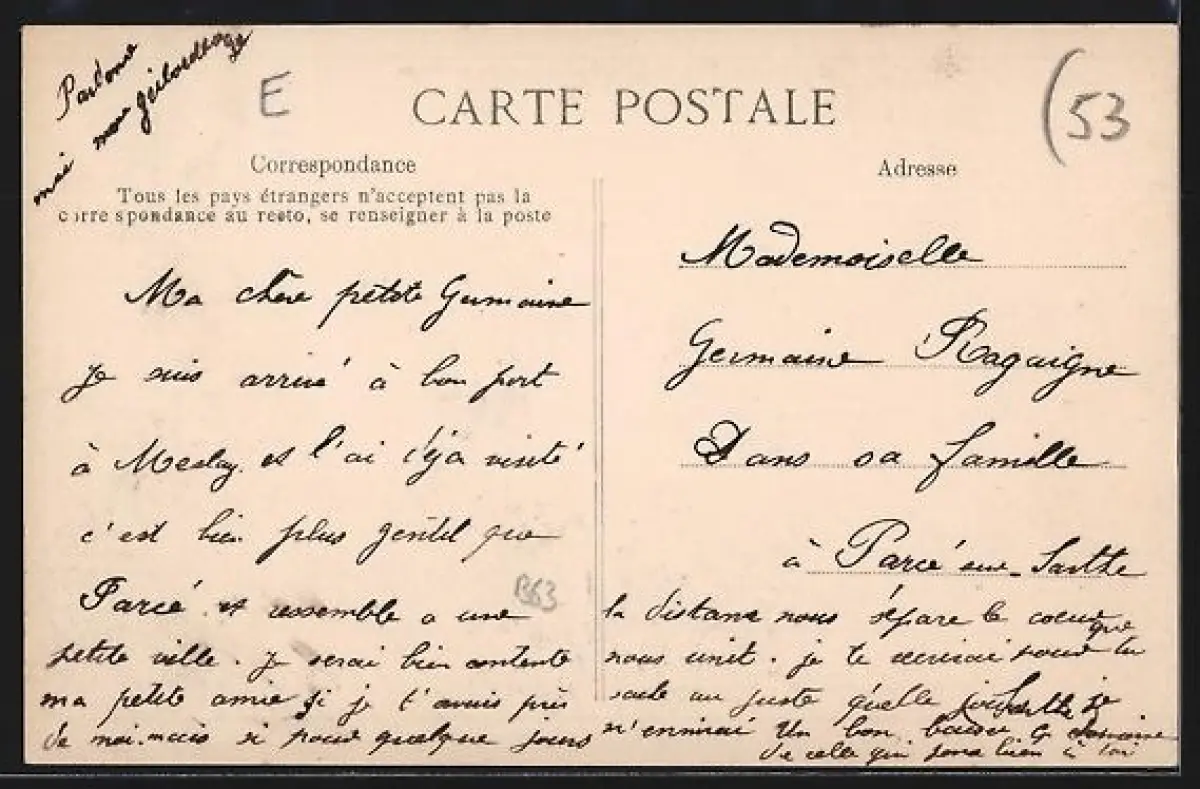 Pardonne
moi mon
E
CARTE POSTALE
(53
Correspondance
Adresse
Tous les pays étrangers n'acceptent pas la
correspondance au recto, se renseigner à la poste
Ma chère petite Germaine
Je suis arrivé à bon port
à Meslay et l'ai déjà visité
c'est bien plus gentil que
Parcé et ressemble a une
petite ville. Je serai bien contente
ma petite amie si je t'avais près
de moi. mais si pour quelque jours
B63
Mademoiselle
Germaine Ragaigne
Dans sa famille
à Parcé sur Sarthe
la distance nous sépare le coeur
nous unit. je te pour que tu
sache au juste quelle je
m'ennuie Un bon baiser
de celle qui sera bien à toi